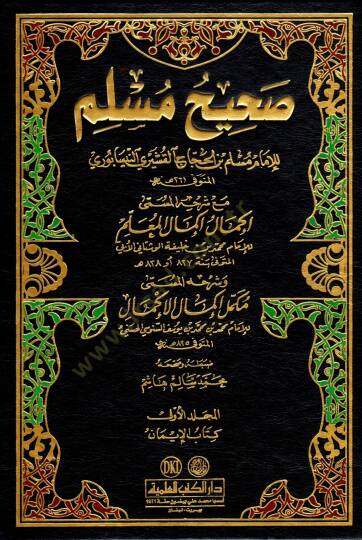 صحيح مسلم
للإمام مسلم بن الحجاج القشيري النيسابوري
المتوفى ٢٦١ هـ
مع شرحه المسمى
إكمال إكمال المعلم
للإمام محمد بن خليفة الوشتاني الأبي
المتوفى سنة ٨٢٧ أو ٨٢٨ هـ
وشرحه المسمى
مكمل إكمال الإكمال
للإمام محمد بن محمد بن يوسف السنوسي الحسني
المتوفى ٨٩٥ هـ
ضبطه وصححه
محمد سالم هاشم
المجلد الأول
كتاب الإيمان
DKI
دار الكتب العلمية
أسسها محمد علي بيضون سنة 1971
بيروت - لبنان